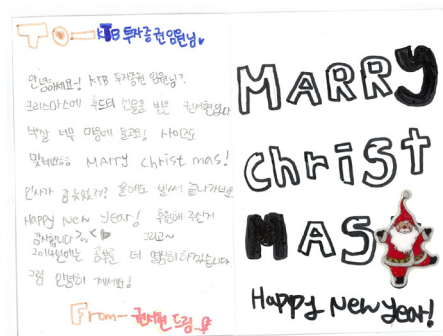 To- KTB 투자증권 임원님♥
안녕하세요~! KTB 투자증권 임원님?
크리스마스에 후드티 선물을 받은 권서현입니다
색깔 너무 마음에 들고요! 사이즈도
맞네요ㅎㅎ MARRY Christ mas!
인사가 늦었죠? 올해도 벌써 끝나가네요.
Happy New year! 후원해 주신거
감사합니다 >_< 그리고~
2014년에는 공부를 더 열심히 하겠습니다
그럼 안녕히 계세요!
From- 권서현 드림
MARRY
christ
MAS
Happy New year!